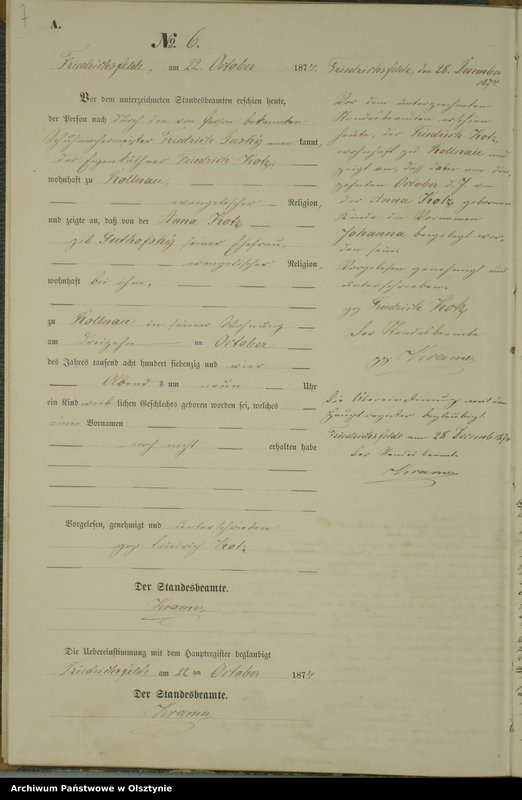 7
A.
No 6.
Friedrichsfelde, am 22. October 1874.
Vor dem unterzeichneten Standesbeamten erschien heute,
der Person nach durch den von Person bekannten
Schuhmachermeister Friedrich kannt,
der Eigenkäthner Friedrich Kotz,
wohnhaft zu Kollnau,
evangelischer Religion,
und zeigte an, daß von der Anna Kotz
geb seiner Ehefrau,
evangelischer Religion,
wohnhaft bei ihm,
zu Kollnau in seiner Wohnung
am dreizehn ten October
des Jahres tausend acht hundert siebenzig und vier
Abend s um neun Uhr
ein Kind weib lichen Geschlechts geboren worden sei, welches
einen Vornamen
noch nicht erhalten habe
Vorgelesen, genehmigt und unterschrieben
gez Friedrich Kotz
Der Standesbeamte.
Kramer
Die Uebereinstimmung mit dem Hauptregister beglaubigt
Friedrichsfelde am 22 ten October 1874
Der Standesbeamte.
Kramer
Friedrichsfelde, den 28. December
1874
Vor dem unterzeichneten
Standesbeamten erschien
heute, der Friedrich Kotz,
wohnhaft zu Kollnau und
zeigt an, daß dem am
October d. J. von
der Anna Kotz geborenen
Kinde die Vornamen
Johanna beigelegt wor
den sein.
Vorgelesen genehmigt und
unterschrieben.
gez Friedrich Kotz
Der Standesbeamte
gez Kramer
Die Übereinstimmung mit dem
Hauptregister beglaubigt.
Friedrichsfelde am 28 December 1874
Der Standesbeamte
Kramer
Archiwum Państwowe w Olsztynie